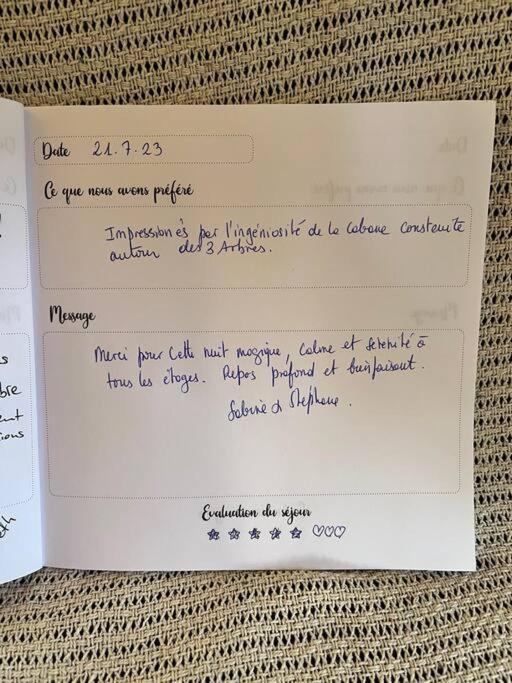 Date 21.7.23
Ce que nous avons préféré
Impressionés par l'ingéniosité de la cabane construite
autour des 3 Arbres.
Message
Merci pour cette nuit magique, calme et serenité à
tous les étages. Repos profond et bienfaisant.
Sabine & Stephane.
Evaluation du séjour
s
bre
ent
ions
eth